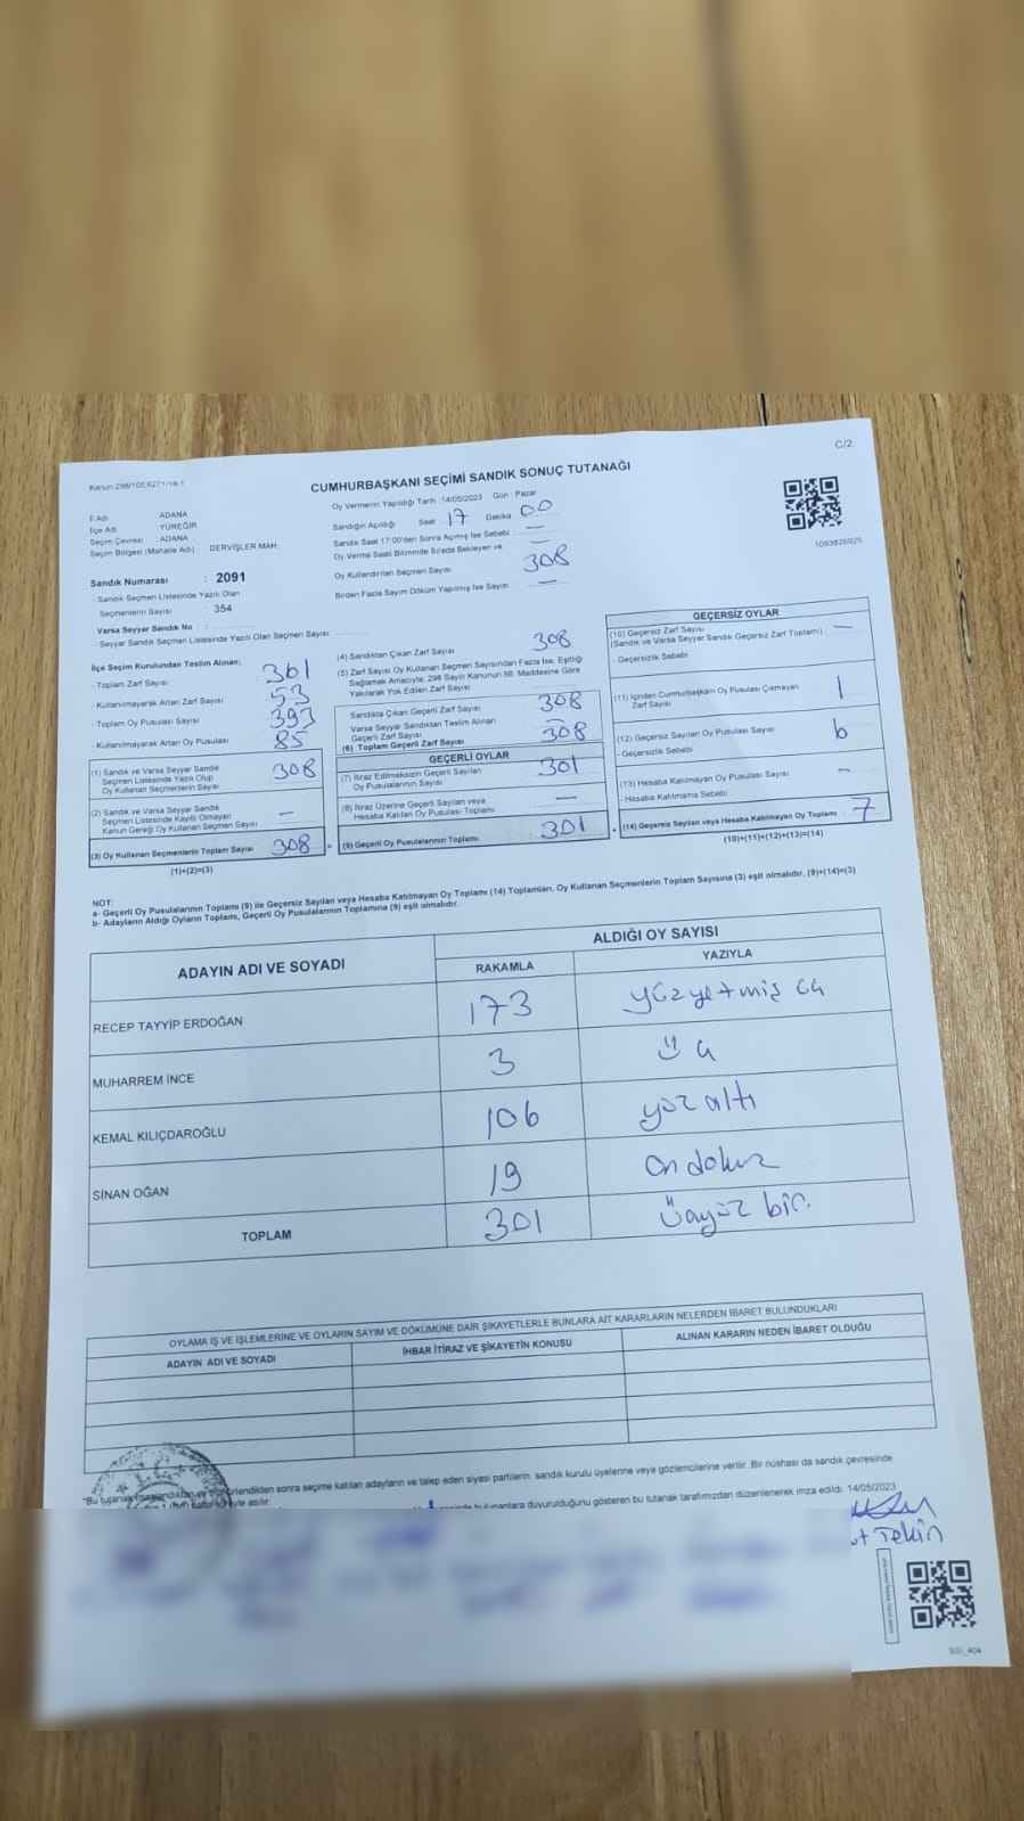 C/2
CUMHURBAŞKANI SEÇİMİ SANDIK SONUÇ TUTANAĞI
Oy Vermenin Yapıldığı Tarih : 14/05/2023 Gün : Pazar
İl Adı : ADANA
İlçe Adı : YÜREĞİR
Seçim Çevresi : ADANA
Seçim Bölgesi (Mahalle Adı) : DERVİŞLER MAH.
Sandığın Açıldığı Saat 17 Dakika 00
Sandık Saat 17:00'den Sonra Açılmış İse Sebebi : —
Oy Verme Saati Bitiminde Sırada Bekleyen ve —
Oy Kullandırılan Seçmen Sayısı 308
Birden Fazla Sayım Döküm Yapılmış İse Sayısı —
Sandık Numarası : 2091
- Sandık Seçmen Listesinde Yazılı Olan
Seçmenlerin Sayısı 354
Varsa Seyyar Sandık No :
- Seyyar Sandık Seçmen Listesinde Yazılı Olan Seçmen Sayısı
İlçe Seçim Kurulundan Teslim Alınan:
- Toplam Zarf Sayısı 361
- Kullanılmayarak Artan Zarf Sayısı 53
- Toplam Oy Pusulası Sayısı 393
- Kullanılmayarak Artan Oy Pusulası 85
(1) Sandık ve Varsa Seyyar Sandık
Seçmen Listesinde Yazılı Olup
Oy Kullanan Seçmenlerin Sayısı 308
(2) Sandık ve Varsa Seyyar Sandık
Seçmen Listesinde Kayıtlı Olmayan
Kanun Gereği Oy Kullanan Seçmen Sayısı —
(3) Oy Kullanan Seçmenlerin Toplam Sayısı 308
(1)+(2)=(3)
(4) Sandıktan Çıkan Zarf Sayısı 308
(5) Zarf Sayısı Oy Kullanan Seçmen Sayısından Fazla İse, Eşitliği
Sağlamak Amacıyla; 298 Sayılı Kanunun 98. Maddesine Göre
Yakılarak Yok Edilen Zarf Sayısı
Sandıkta Çıkan Geçerli Zarf Sayısı 308
Varsa Seyyar Sandıktan Teslim Alınan
Geçerli Zarf Sayısı —
(6) Toplam Geçerli Zarf Sayısı 308
GEÇERLİ OYLAR
(7) İtiraz Edilmeksizin Geçerli Sayılan
Oy Pusulalarının Sayısı 301
(8) İtiraz Üzerine Geçerli Sayılan veya
Hesaba Katılan Oy Pusulası Toplamı —
(9) Geçerli Oy Pusulalarının Toplamı 301
GEÇERSİZ OYLAR
(10) Geçersiz Zarf Sayısı —
(Sandık ve Varsa Seyyar Sandık Geçersiz Zarf Toplamı)
- Geçersizlik Sebebi
(11) İçinden Cumhurbaşkanı Oy Pusulası Çıkmayan
Zarf Sayısı 1
(12) Geçersiz Sayılan Oy Pusulası Sayısı 6
- Geçersizlik Sebebi
(13) Hesaba Katılmayan Oy Pusulası Sayısı —
- Hesaba Katılmama Sebebi
(14) Geçersiz Sayılan veya Hesaba Katılmayan Oy Toplamı 7
(10)+(11)+(12)+(13)=(14)
NOT:
a- Geçerli Oy Pusulalarının Toplamı (9) ile Geçersiz Sayılan veya Hesaba Katılmayan Oy Toplamı (14) Toplamları, Oy Kullanan Seçmenlerin Toplam Sayısına (3) eşit olmalıdır. (9)+(14)=(3)
b- Adayların Aldığı Oyların Toplamı, Geçerli Oy Pusulalarının Toplamına (9) eşit olmalıdır.
ADAYIN ADI VE SOYADI
ALDIĞI OY SAYISI
RAKAMLA YAZIYLA
RECEP TAYYİP ERDOĞAN 173 yüzyetmiş üç
MUHARREM İNCE 3 üç
KEMAL KILIÇDAROĞLU 106 yüz altı
SİNAN OĞAN 19 on dokuz
TOPLAM 301 üçyüz bir.
OYLAMA İŞ VE İŞLEMLERİNE VE OYLARIN SAYIM VE DÖKÜMÜNE DAİR ŞİKAYETLERLE BUNLARA AİT KARARLARIN NELERDEN İBARET BULUNDUKLARI
ADAYIN ADI VE SOYADI
İHBAR İTİRAZ VE ŞİKAYETİN KONUSU
ALINAN KARARIN NEDEN İBARET OLDUĞU
sonra seçime katılan adayların ve talep eden siyasi partilerin, sandık kurulu üyelerine veya gözlemcilerine verilir. Bir nüshası da sandık çevresinde
duyurulduğunu gösteren bu tutanak tarafımızdan düzenlenerek imza edildi. 14/05/2023
Tekin